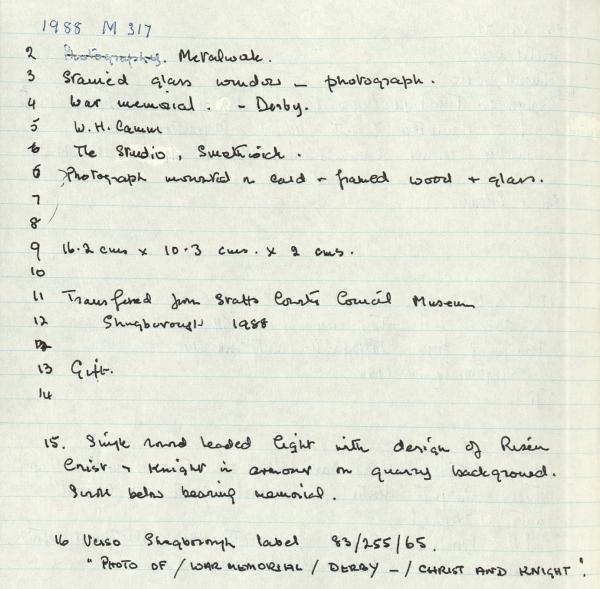 1988 M 317
2 Photographs. Metalwork.
3 Stained glass window - photograph.
4 War memorial. - Derby.
5 W.H. Camm
6 The Studio, Smethwick.
6 Photograph mounted on card - framed wood + glass.
7
8
9 16.2 cms x 10.3 cms. x 2 cms.
10
11 Transferred from Staffs County Council Museum
12 Shugborough 1988
12
13 Gift.
14
15. Single round leaded light with design of Risen
Crist + Knight in armour on quarry background.
Scroll below bearing memorial.
16 Verso Shugborough label 83/255/65.
"PHOTO OF / WAR MEMORIAL / DERBY - / CHRIST AND KNIGHT".